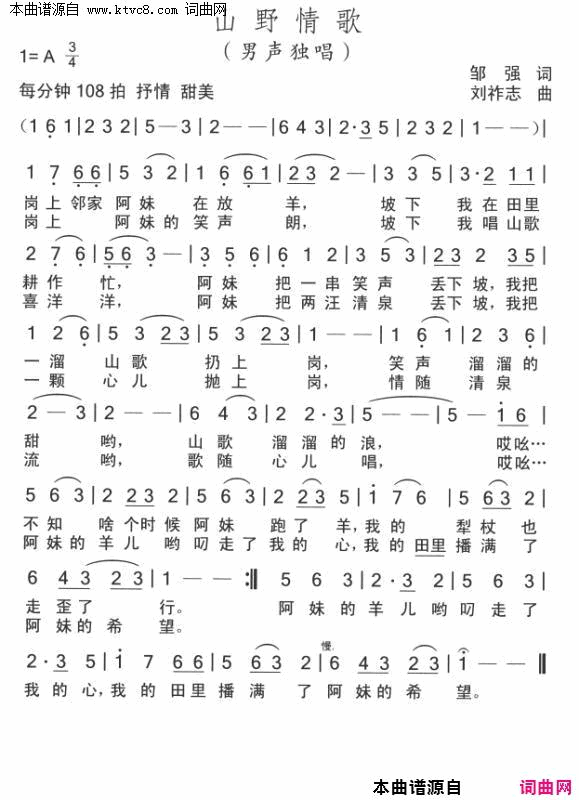 本曲谱源自
www.ktvc8.com 词曲网
山野情歌
(男声独唱)
1=A 3/4
邹强 词
每分钟108拍 抒情 甜美
刘祚志 曲
(1 6 1|2 3 2|5-3|2--|6 4 3|2·3 5|2 3 2|1--)|
1 7 6 6|5 3 2|1 6 6 1|2--|3 3 5|3·2 1 1|
岗上邻家阿妹在放羊,坡下我在田里
岗上阿妹的笑声朗,坡下我唱山歌
2 7 6|5 6 3-|3 5 6|6 1 2|3 5 3|2 3 2 3 5|
耕作忙,阿妹把一串笑声丢下坡,我把
喜洋洋,阿妹把两汪清泉丢下坡,我把
1 2 6|5 3 2 3|5 3 2 3|1--|1 6 1|5 3 5|
一溜山歌扔上岗,笑声溜溜的
一颗心儿抛上岗,情随清泉
2-3|2--|6 4 3|2 2·3|5--|5-1 6|
甜哟,山歌溜溜的浪,哎吆…
流哟,歌随心儿唱,哎吆…
5 6 3|2 2 3 5 6 3|2·3 5|1 7 6|5 6 6 3|
不知啥个时候阿妹跑了羊,我的犁杖也
阿妹的羊儿哟叼走了我的心,我的田里播满了
6 4 3 2 3|1--:|| 5 6 3|2 2 3 5 6 3|
走歪了行。阿妹的羊儿哟叼走了
阿妹的希望。
慢.
2·3 5|1 7 6 6|5 6 3 2|6 4 3 2 3|1-||
我的心,我的田里播满了阿妹的希望。
本曲谱源自 词曲网